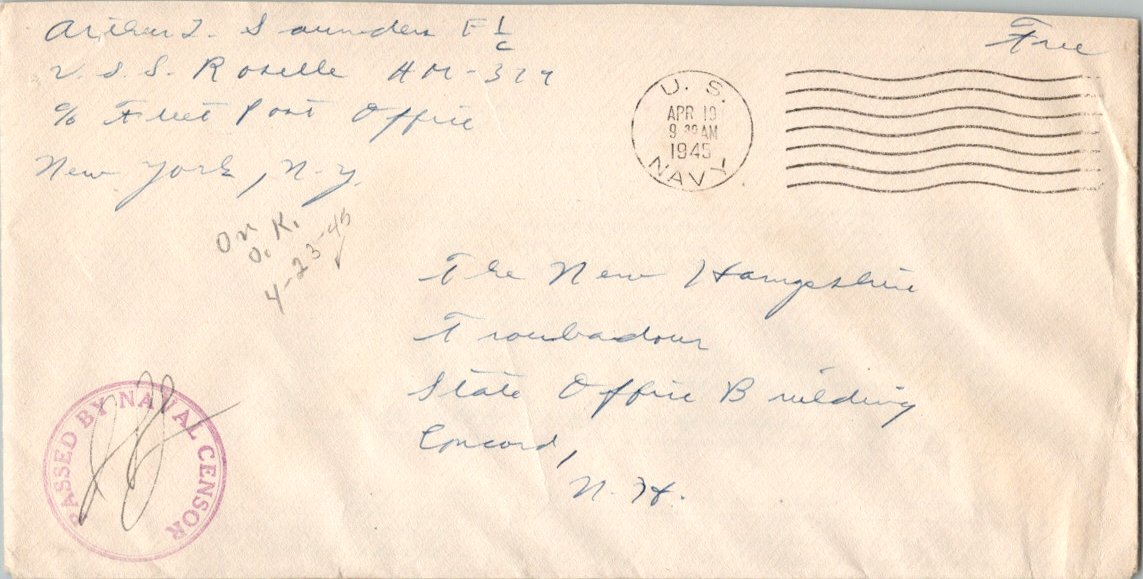 Arthur L. Saunders F 1/c
U.S.S. Roselle AM-379
c/o Fleet Post Office
New York, N.Y.
Free
U. S. NAVY
APR 19
9 30 AM
1945
On
O.K.
4-23-45
The New Hampshire
Troubadour
State Office Building
Concord,
N. H.
PASSED BY NAVAL CENSOR